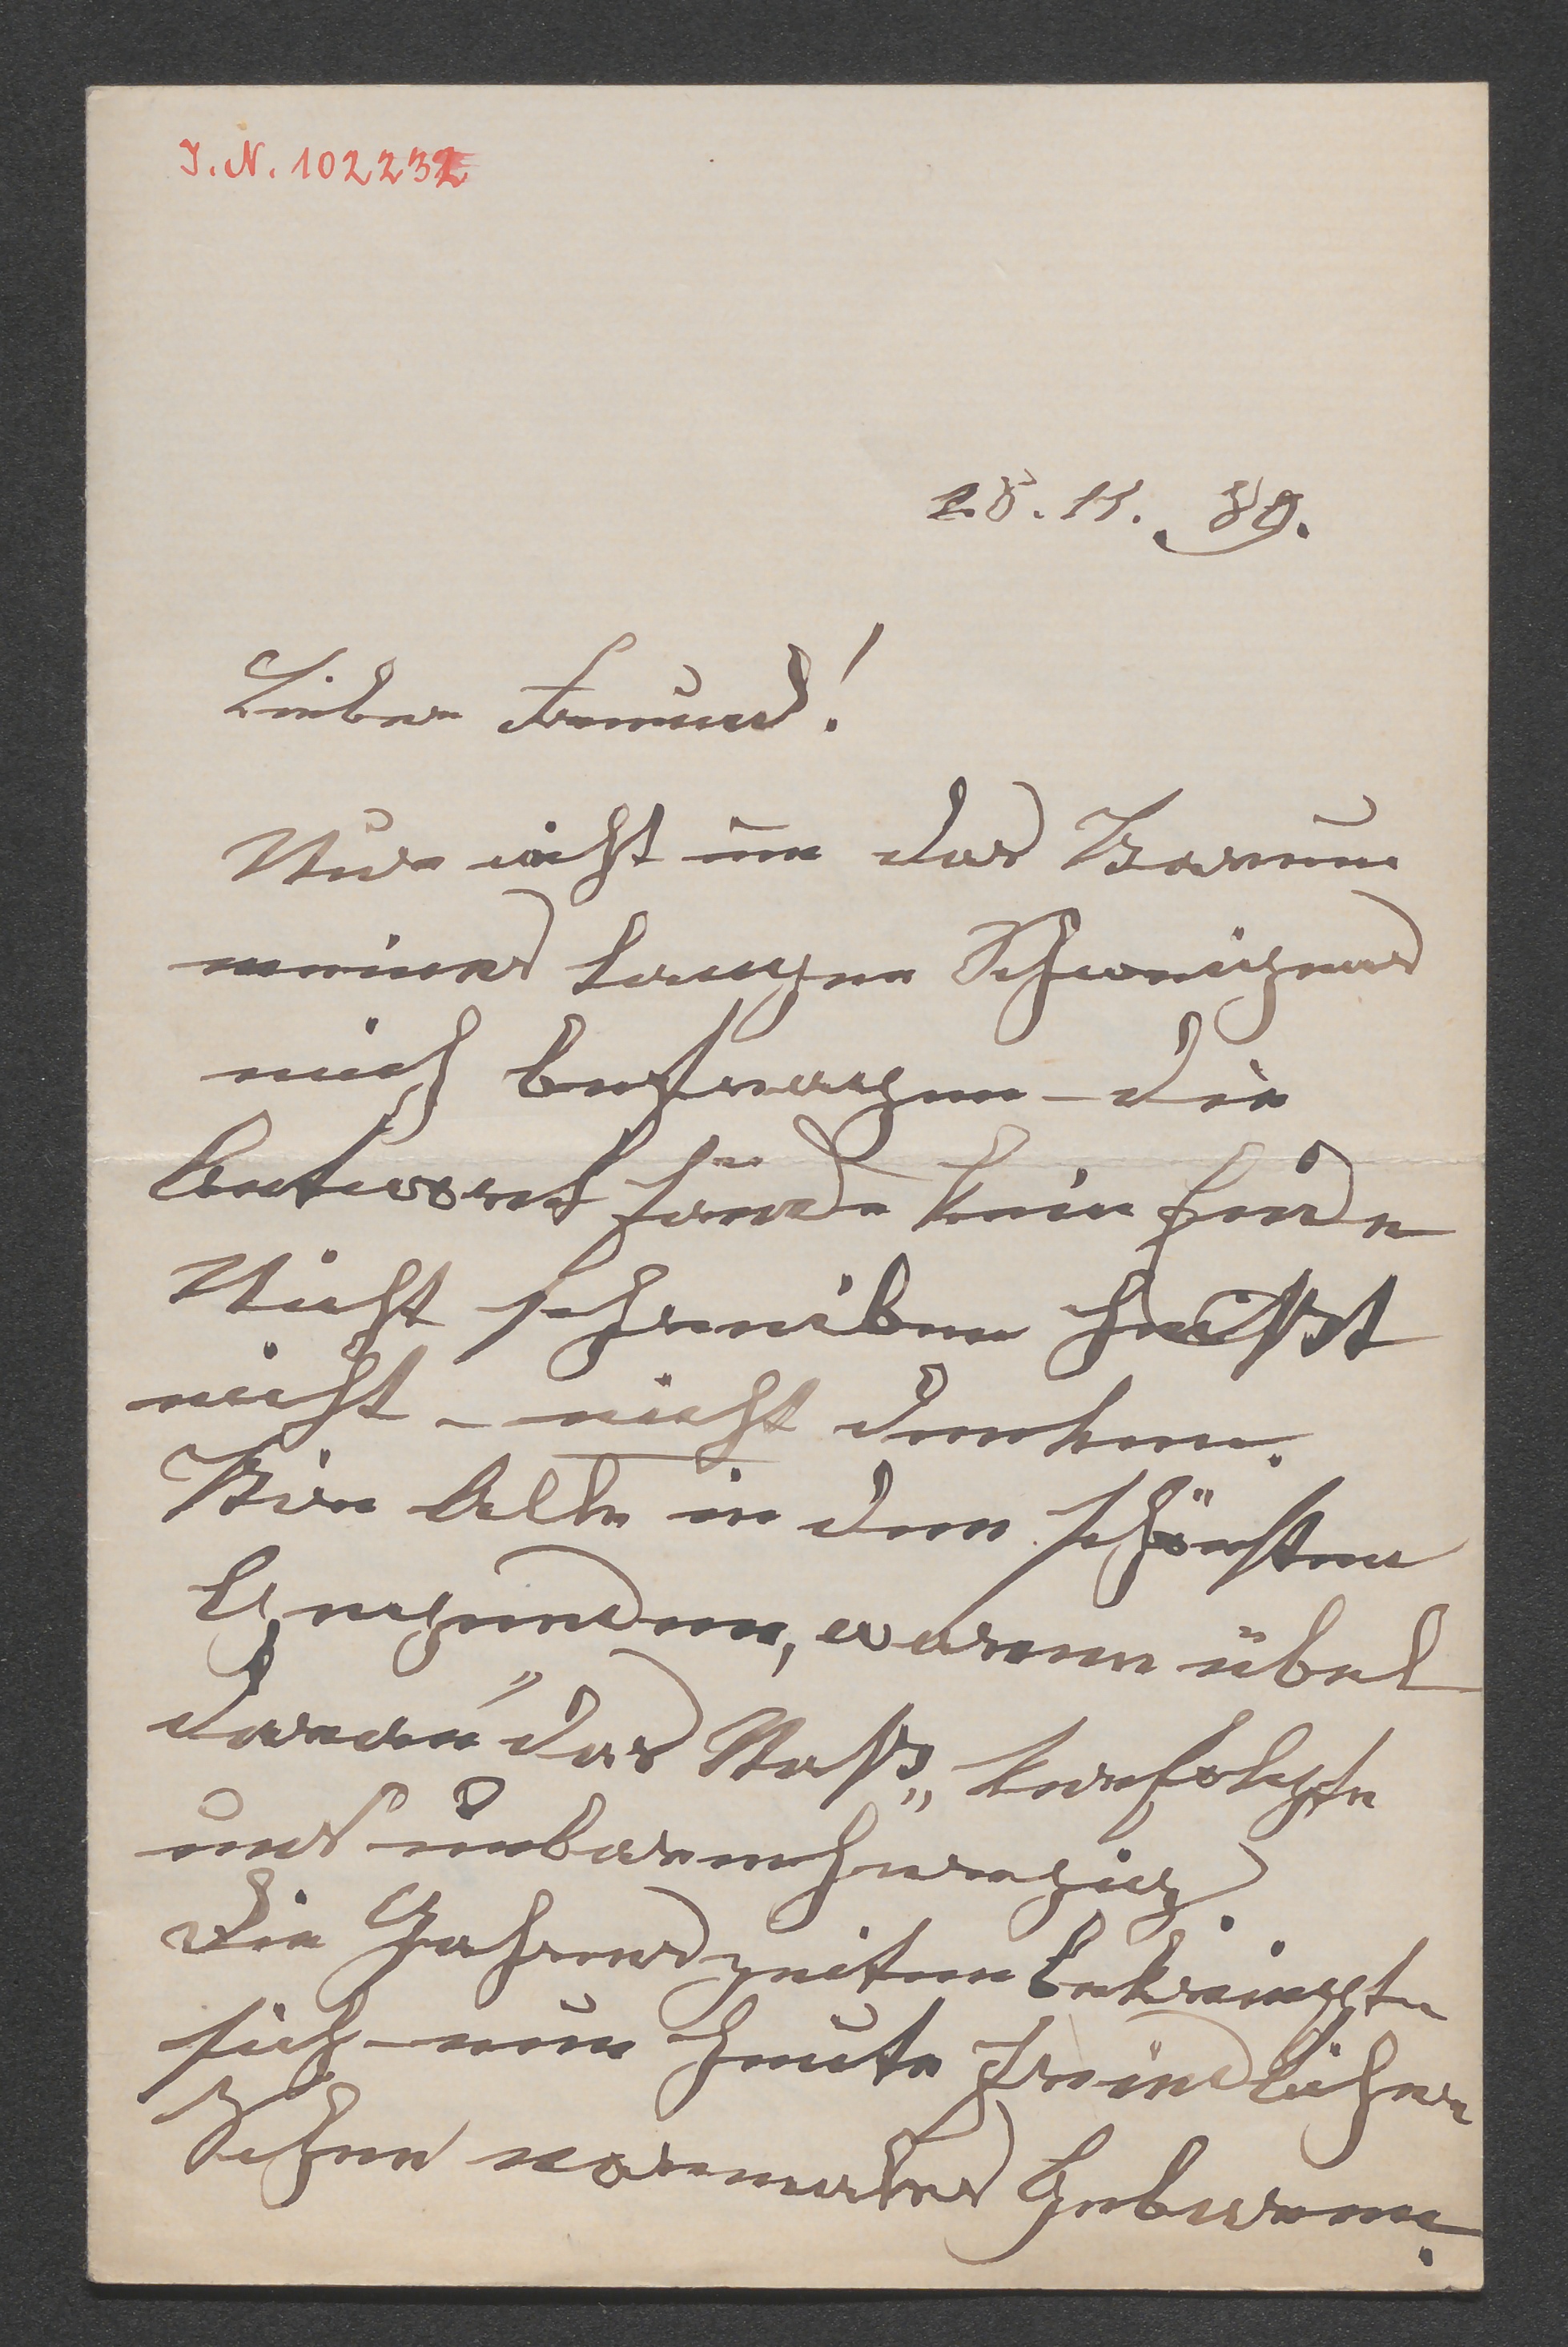 I. N. 102232
28. 11. 89.
Lieber Freund!
Nur nicht um das Warum
meines langen Schweigens
mich befragen – die
Antwort fände kein Ende
Nicht schreiben heißt
nicht – nicht denken.
Wir Alle in den schönsten
Gegenden, waren übel
daran „das Naß“ verfolgte
uns unbarmherzig
Die Jahreszeiten
sich – nun heute freundlicher
Schnee normales Gebaren.